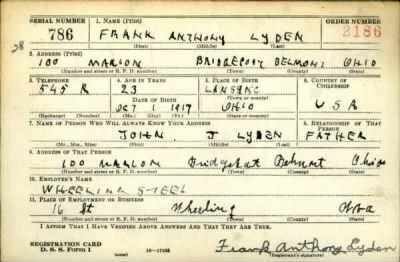 SERIAL NUMBER 1. NAME (Print) ORDER NUMBER
786 FRANK ANTHONY LYDEN 2186
(First) (Middle) (Last)
28
2. ADDRESS (Print)
100 MARION BRIDGEPORT BELMONT OHIO
(Number and street or R. F. D. number) (Town) (County) (State)
3. TELEPHONE 4. AGE IN YEARS 5. PLACE OF BIRTH 6. COUNTRY OF CITIZENSHIP
545 R 23 LANSING
DATE OF BIRTH (Town or county)
OCT 1 1917 OHIO U S A
(Exchange) (Number) (Mo.) (Day) (Yr.) (State or country)
7. NAME OF PERSON WHO WILL ALWAYS KNOW YOUR ADDRESS 8. RELATIONSHIP OF THAT PERSON
JOHN J LYDEN FATHER
(Mr., Mrs., Miss) (First) (Middle) (Last)
9. ADDRESS OF THAT PERSON
100 MARION Bridgeport Belmont Ohio
(Number and street or R. F. D. number) (Town) (County) (State)
10. EMPLOYER'S NAME
WHEELING STEEL
11. PLACE OF EMPLOYMENT OR BUSINESS
16 St Wheeling
(Number and street or R. F. D. number) (Town) (County) (State)
I AFFIRM THAT I HAVE VERIFIED ABOVE ANSWERS AND THAT THEY ARE TRUE.
REGISTRATION CARD
D. S. S. FORM 1 (over) Frank Anthony Lyden
(Registrant's signature)